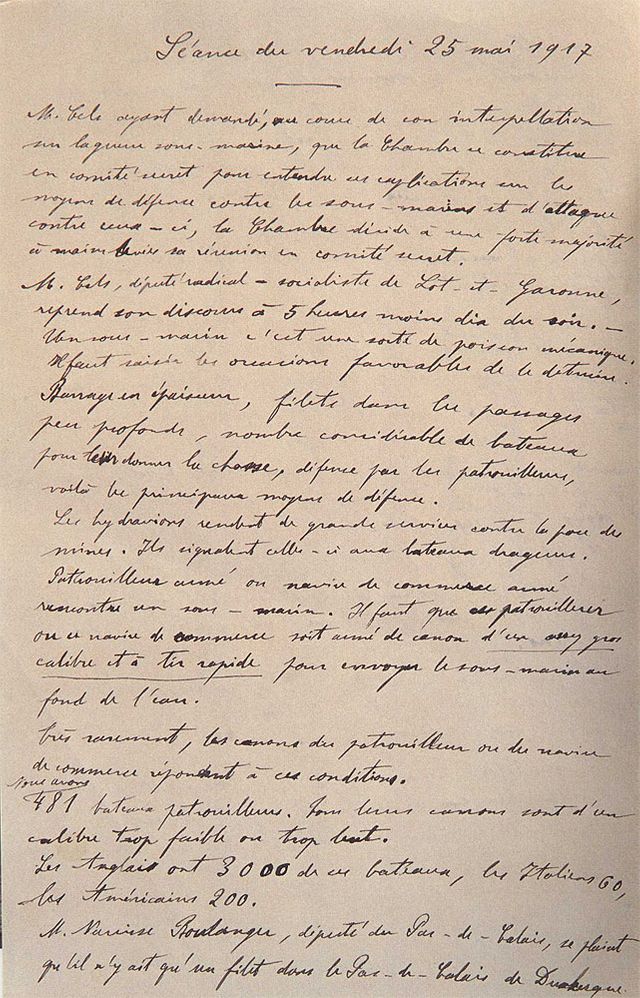 Séance du vendredi 25 mai 1917
M. Cels ayant demandé, au cours de son interpellation
sur la guerre sous-marine, que la Chambre se constitue
en comité secret pour entendre ses explications sur les
moyens de défense contre les sous-marins et d'attaque
contre ceux-ci, la Chambre décide à une forte majorité
à mains levées sa réunion en comité secret.
M. Cels, député radical-socialiste de Lot-et-Garonne,
reprend son discours à 5 heures moins dix du soir. –
Un sous-marin c'est une sorte de poisson mécanique.
Il faut saisir les occasions favorables de le détruire.
Barrage en épaisseur, filets dans les passages
peu profonds, nombre considérable de bateaux
pour leur donner la chasse, défense par les patrouilleurs,
voilà les principaux moyens de défense.
Les hydravions rendent de grands services contre la pose des
mines. Ils signalent celles-ci aux bateaux dragueurs.
Patrouilleur armé ou navire de commerce armé
rencontre un sous-marin. Il faut que ce patrouilleur
ou ce navire de commerce soit armé de canon d'un assez gros
calibre et à tir rapide pour envoyer le sous-marin au
fond de l'eau.
Très rarement, les canons du patrouilleur ou du navire
de commerce répondent à ces conditions.
Nous avons
481 bateaux patrouilleurs. Tous leurs canons sont d'un
calibre trop faible ou trop lent.
Les Anglais ont 3000 de ces bateaux, les Italiens 60,
les Américains 200.
M. Narcisse Boulanger, député du Pas-de-Calais, se plaint
qu'il n'y ait qu'un filet dans le Pas-de-Calais de Dunkerque